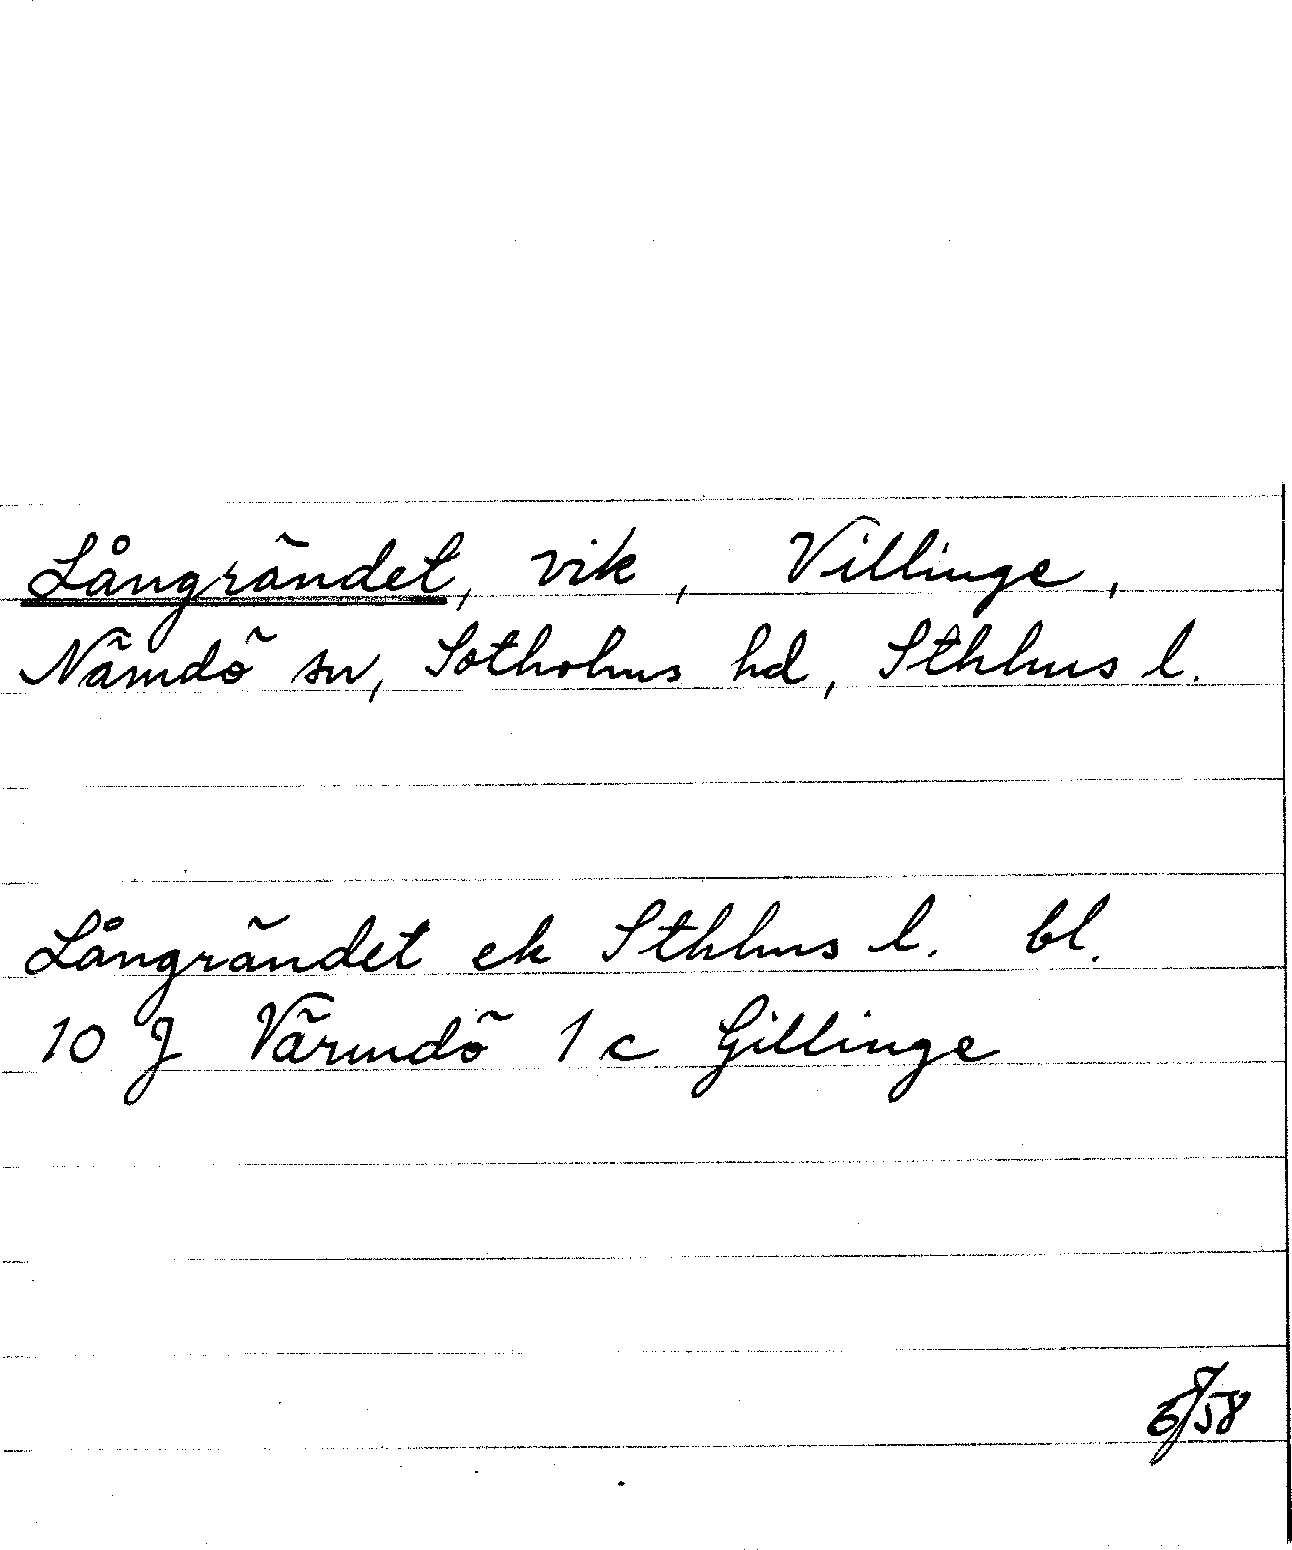 Långrändet, vik, Villinge,
Nämdö sn, Sotholms hd, Sthlms l.
Långrändet ek Sthlms l. bl.
10 J Värmdö 1 c Gillinge